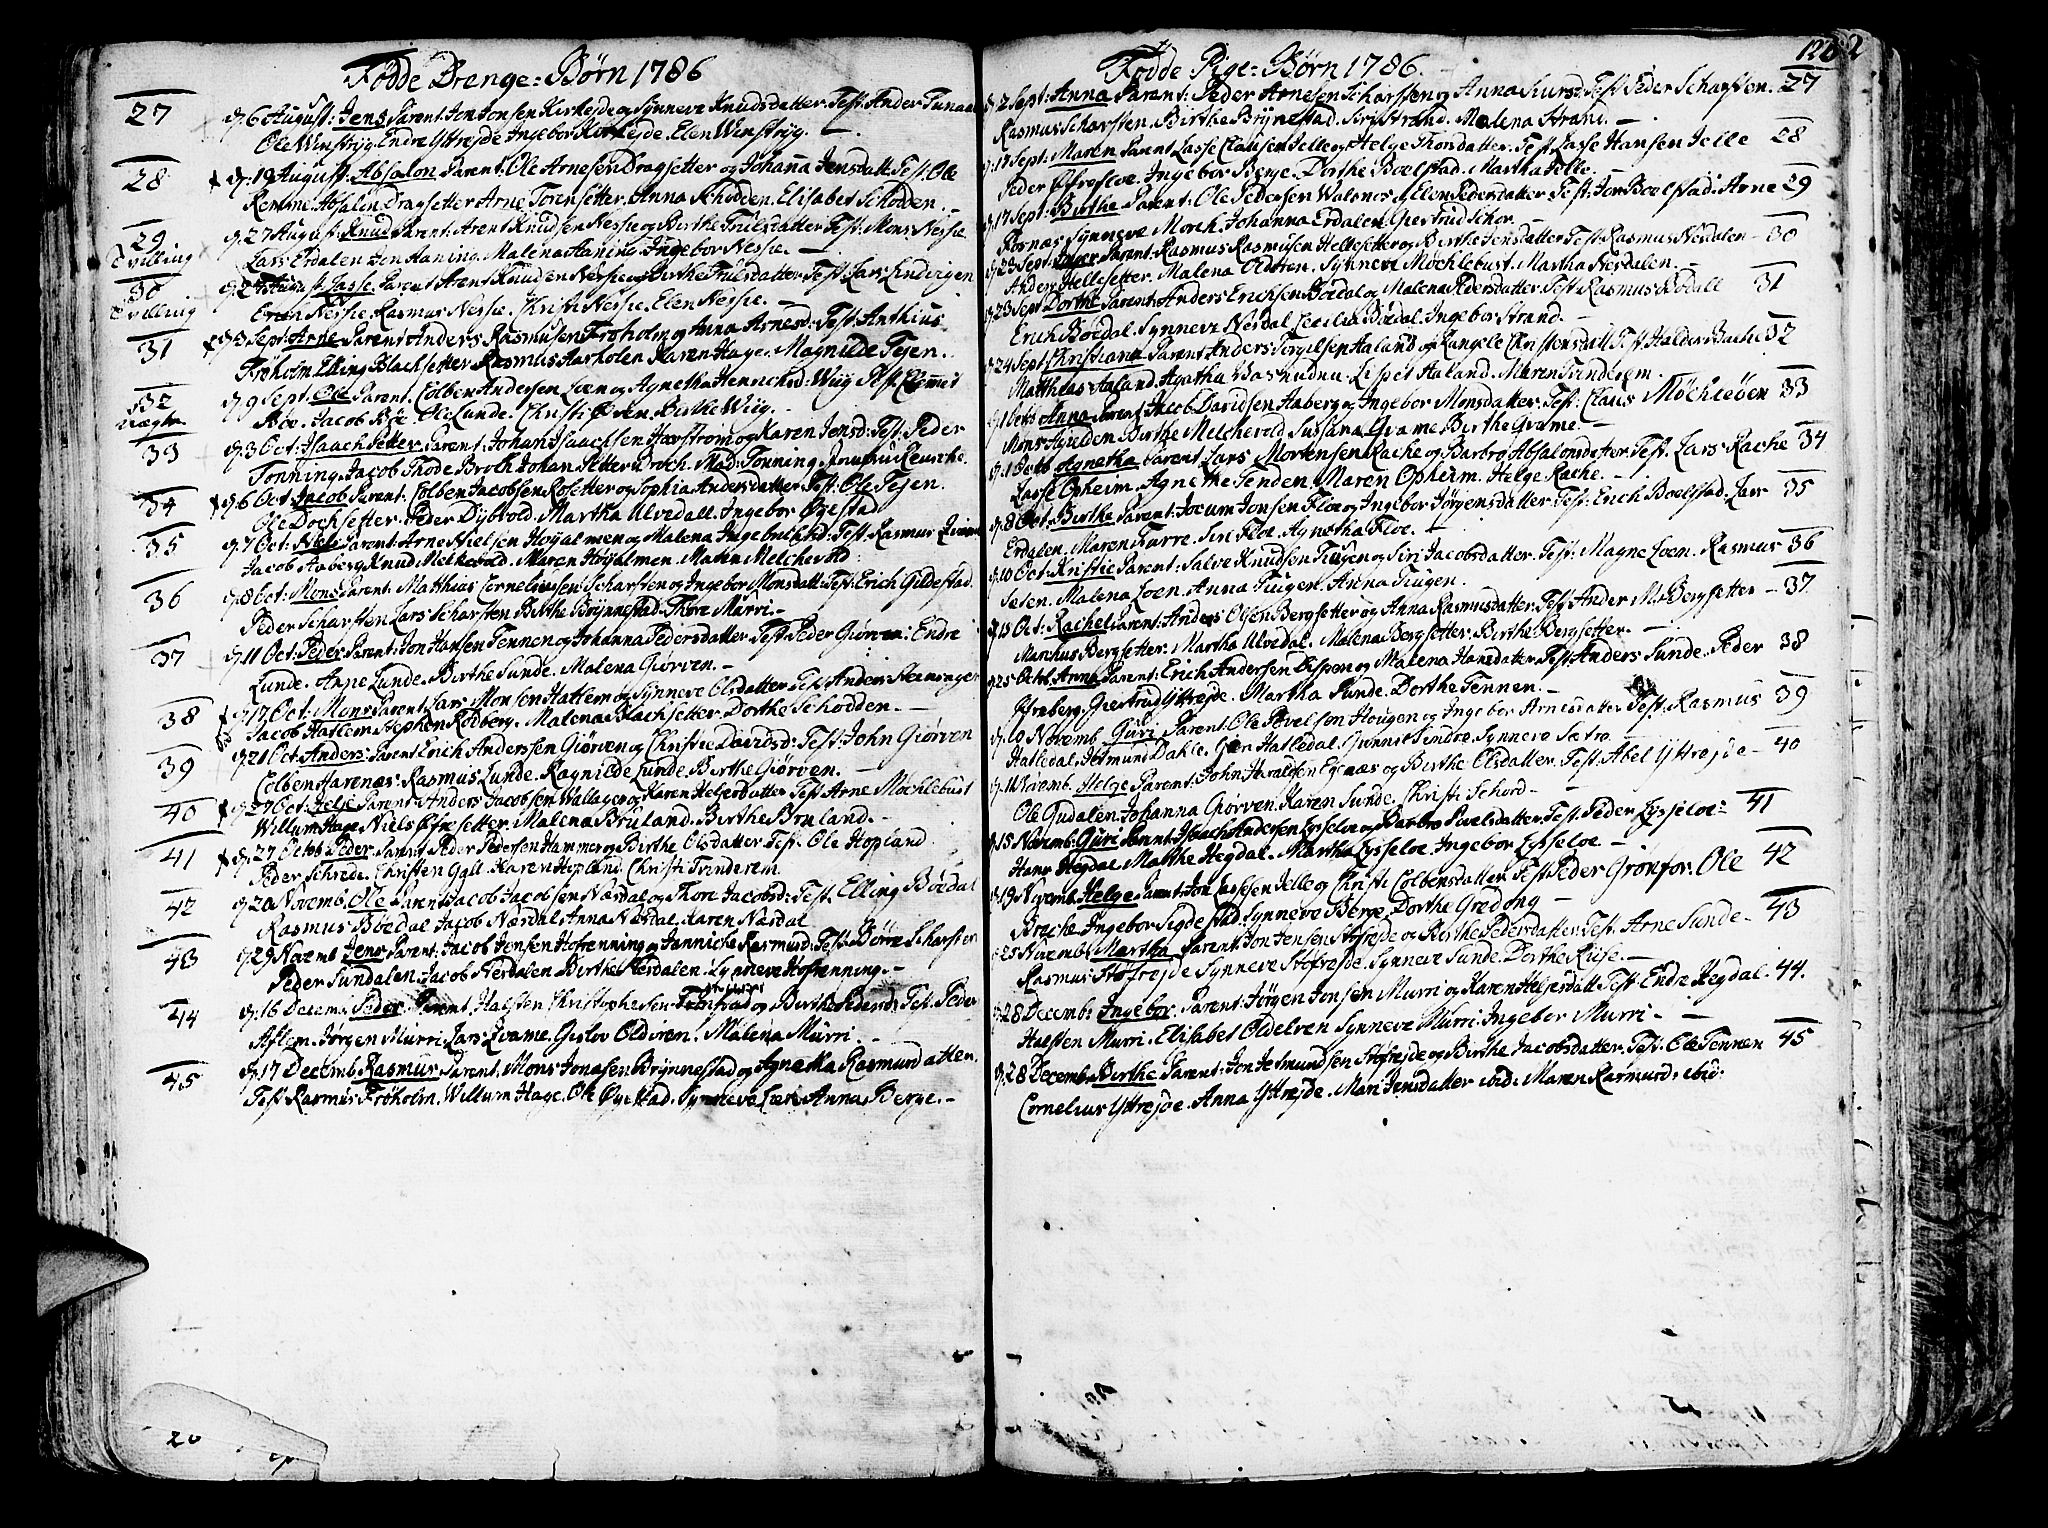 Fødde Drenge-Børn 1786
27 d. 6 August: Jens Parent: Jon Jonsen Kirkeide og Synneve Knudsdatter. Test: Ander
Ole Winstryg. Endre Ytrejde Ingebor Kirkejde. Elen Winstryg. —
28 d. 19 August. Absalon Parent: Ole Arnesen Dragsetter og Johanna Jensdatt. Test: Ole
Remme Absalon Dragsetter Arne Torensetter. Anna Schodden. Elisabet Schodden. —
29 d. 27 August: Knud Parent: Arent Knudsen Nessie og Birthe Friisdatter Test: Mons Nessie
Tvilling Lars Erdalen Jon Haning. Malena Haning. Ingebor Nessie. —
30 d. 27 August: Lasse. Parent Arent Knudsen Nessie og Birthe Friisdatter Test: Lars
Tvilling Nessie. Rasmus Nessie. Christi Nessie. Elen Nessie. —
31 d. 3 Sept: Arne Parent: Anders Rasmusen Frøholm og Anna Arnesd: Test: Anthius
Frøholm Elling Blachsetter Rasmus Aarholen Karen Hage. Magnilde Tejen.
32 d. 9 Sept. Ole Parent. Colben Andersen Loen og Agnetha Henrichsd: Wiig Test.
Bøe. Jacob Bøe. Ole Sunde. Christi Øven. Birthe Wiig. —
33 d. 3 Oct: Isaach Petter Parent: Johan Isaachsen Havstrøm og Karen Jensd: Test: Peder
Tonning. Jacob Thode Broch Johan Petter Broch. Mad: Tonning. Reusche.
34 d. 6 Oct. Jacob Parent: Colben Jacobsen Rosetter og Sophia Andersdatter. Test: Ole Tejen.
Ole Dochsetter. Peder Dybvold. Martha Ulvedall. Ingebor Øyestad
35 d. 7 Oct: Niels Parent: Arne Nielsen Høyalmen og Malena Ingebritsd: Test: Rasmus
Jacob Aaberg Knud Melkevold. Maren Høyalmen. Malen Melchevold.
36 d. 8 Oct: Mons Parent: Matthias Corneliussen Scharsten og Ingebor Monsdatt: Test: Erich Gildestad.
Peder Scharsten Lars Scharsten Birthe Brynnestad. Thore Murri. —
37 d. 11 Oct: Peder Parent: Jon Hansen Tennen og Johanna Pedersdatter Test: Peder Giørven: Endre
Lunde. Arne Lunde. Birthe Sunde. Malena Giørven. —
38 d. 17 Oct. Mons Parent: Lars Monsen Hatlem og Synneve Olsdatter Test: Anders
Jacob Hatlem Stephen Rødberg. Malena Blachsetter. Dorthe Schodden. —
39 d. 21 Oct: Anders Parent: Erich Andersen Giørven og Christie Davidsd: Test: John Giørven
Colben Harenæs: Rasmus Lunde. Ragnilde Lunde. Birthe Giørven. —
40 d. 27 Oct. Helje Parent: Anders Jacobsen Wallager og Karen Heljesdatter Test: Arne Møchlebust
Willum Hage Niels Øfresetter. Malena Bruland. Birthe Bruland. —
41 d. 27 Octob. Peder. Parent: Peder Pedersen Hammer og Birthe Olsdatter. Test: Ole Hopland
Peder Schrede. Christen Gall. Karen Hopland. Christi Tvinderem.
42 d. 20 Novemb. Ole Parent: Jacob Jacobsen Næsdal og Thore Jacobsd: Test: Elling Bødal
Rasmus Bødal Jacob Næsdal Anna Næsdal. Karen Næsdal
43 d. 29 Novemb. Jens Parent: Jacob Jensen Hofrenning og Jannicke Rasmusd: Test: Børre Scharsten
Peder Sundalen. Jacob Nesdalen Birthe Nesdalen. Synneve Hofrenning. —
44 d. 16 Decemb: Peder Parent. Halsten Christophersen og Birthe Pedersd: Test: Peder
Aflem. Jørgen Murri. Lars Qvame. Gislov Oldren. Malena Murri. —
45 d. 17 Decemb. Rasmus Parent. Mons Jonasen Brynnestad og Agnetha Rasmusdatter.
Test: Rasmus Frøholm. Willum Hage. Ole Øyestad. Synneve Loen Anna Berge. —
20
Fødde Pige-Børn 1786.
d. 2 Sept: Anna Parent: Peder Arnesen Scharsten og Anna Test: Peder Scharsten. 27
Rasmus Scharsten. Birthe Brynestad. Siri Strand. Malena Strand. —
d. 17 Sept: Maren Parent Lasse Clausen Jelle og Helge Thorsdatter. Test: Lasse Hansen Jelle 28
Peder Øfrefloe. Ingebor Berge. Dorthe Boelstad. Martha Jelle.
d. 17 Sept: Birthe Parent: Ole Pedersen Walsnes og Elen Pedersdatter Test: Jon Boelstad: Arne 29
Rornæs Synneve Morch Johanna Erdalen. Giertrud Schor. —
d. 23 Sept: Inger Parent: Rasmus Rasmusen Hellesetter og Birthe Jensdatter Test: Rasmus Nesdalen — 30
Anders Hellesetter. Malena Oldren. Synneve Møchlebust. Martha Nesdalen. —
d. 23 Sept Dorthe Parent: Anders Erichsen Bødal og Malena Pedersdatter. Test Rasmus Bødall 31
Erich Bødal. Synneve Nesdal Cecilia Bødal. Ingebor Strand. —
d. 24 Sept: Christiana Parent Anders Torgilsen Haland og Rangele Christensdatt. Test: Haldor Bache 32
Matthias Haland. Agatha. Lispet Haland. Maren Tvinderem.
d. 1 Octb Anna Parent Jacob Davidsen Aaberg og Ingebor Monsdatter. Test: Claus Møchleøen 33
Mons Birthe Melchevold Susana Qvame Birthe Qvame. —
d. 1 Octb Agnetha Parent: Lars Mortensen Rache og Barbro Absalonsdatter. Test. Lars Rache 34
Lasse Opheim. Agnethe Tenden. Maren Opheim. Helge Rache. —
d. 8 Oct: Birthe Parent: Jocum Jonsen Floe og Ingebor Jørgensdatter: Test: Erich Boelstad. Lars 35
Erdalen. Maren Siri Floe. Agnetha Floe.
d. 10 Oct: Kristie Parent: Salve Knudsen Tiugen og Siri Jacobsdatter. Test: Magne Loen. Rasmus 36
Malena Loen. Anna Tiugen. Anna Tiugen.
d. 15 Oct: Rachel Parent: Anders Olsen Bergsetter og Anna Rasmusdatter. Test: Ander M: Bergsetter — 37.
Marchus Bergsetter. Martha Ulvedal. Malena Bergsetter. Birthe Bergsetter. —
d. 25 Octob. Anna Parent: Erich Andersen Lispen og Malena Hansdatter. Test: Anders Sunde. Peder 38
Giertrud Yttrejde. Martha Sunde. Dorthe Tennen. —
d. 10 Novemb. Guri Parent. Ole Povelsen Hougen og Ingebor Arnesdatter Test: Rasmus 39
Hatledal. Jetmund Dahle. Hatledal. Gunni Sindre. Synneve Sætre —
d. 11 Novemb. Helge Parent: John Haraldsen Egenæs og Birthe Olsdatter. Test: Abel Yttrejde — 40
Ole Gudalen. Johanna Giørven. Karen Sunde. Christi Schord —
d. 15 Novemb: Guri Parent: Isaach Andersen Lysseloe og Barbro Paulsdatter. Test: Peder Lysseloe: 41
Hans Hegdal Malthe Hegdal. Martha Lysseloe. Ingebor Lysseloe —
d. 19 Novemb Helge Parent: Jon Lassesen Jelle og Christi Colbensdatter. Test: Peder Grønfor. Ole 42
Brache Ingebor Sigdestad. Synneve Berge. Dorthe Gredong —
d. 25 Novemb. Martha Parent: Jon Jensen Støfrejde og Birthe Pedersdatter. Test: Arne Sunde — 43
Rasmus Støfrejde Synneve Støfrejde. Synneve Sunde. Dorthe Ruise. —
d. 28 Decemb: Ingebor Parent: Jørgen Jonsen Murri og Karen Heljesdatt. Test: Endre Hegdal. 44.
Halsten Murri. Elisabet Oldelven Synneve Murri. Ingebor Murri —
d. 28 Decemb Birthe Parent: Jon Jetmundsen Støfrejde og Birthe Jacobsdatter. Test: Ole Tennen 45
Cornelius Yttrejde. Anna Yttrejde. Mari Jensdatter ibid: Maren Rasmusd: ibid: